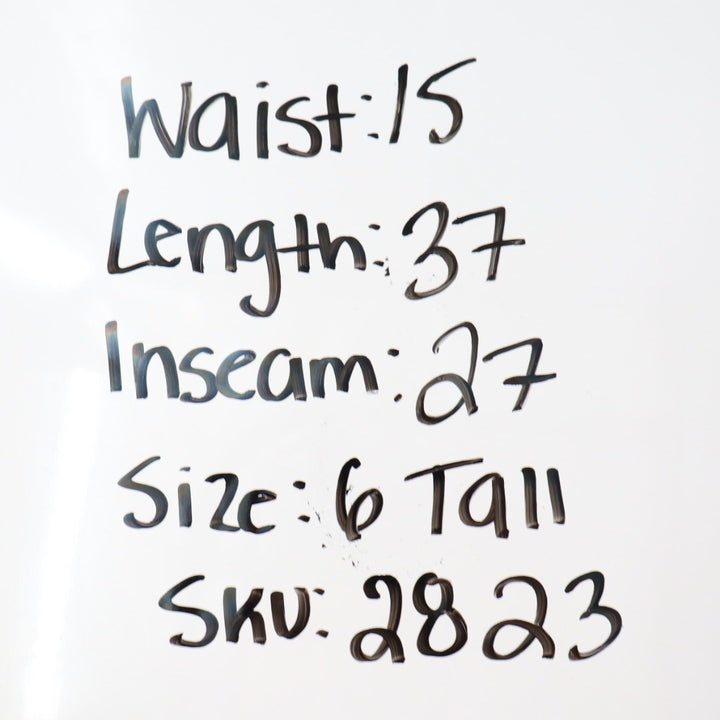 Waist: 15
Length: 37
Inseam: 27
Size: 6 Tall
SKU: 2823